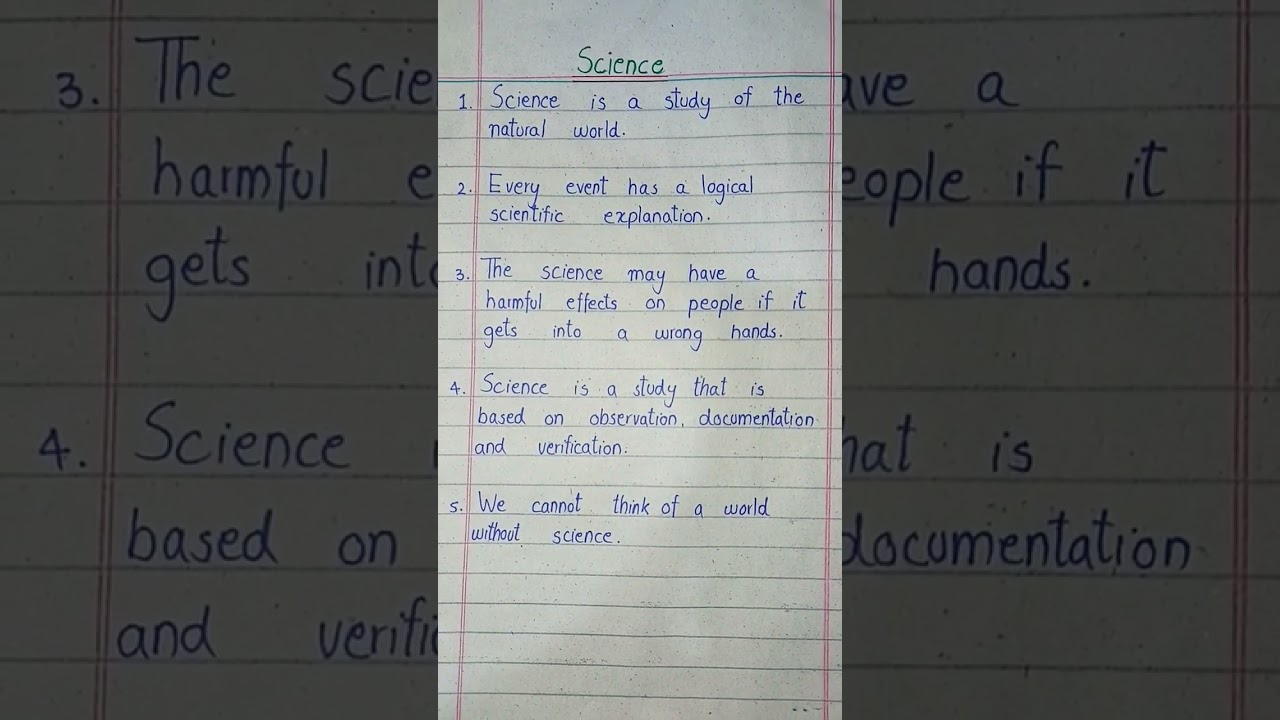 Science
1. Science is a study of the
natural world.
2. Every event has a logical
scientific explanation.
3. The science may have a
harmful effects on people if it
gets into a wrong hands.
4. Science is a study that is
based on observation, documentation
and verification.
5. We cannot think of a world
without science.